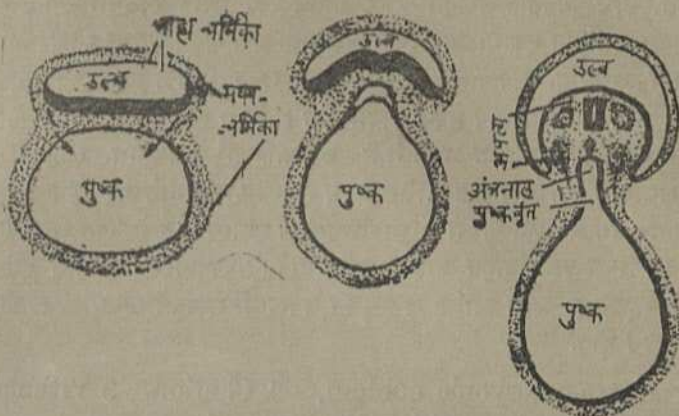 बाह्य चर्मिका
उल्ब
मध्य-
चर्मिका
पुष्क
उल्ब
पुष्क
उल्ब
अंत्रनाल
पुष्क वृंत
पुष्क